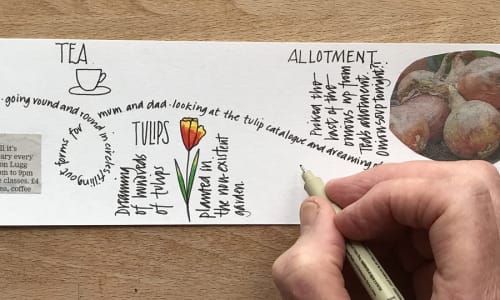 TEA
ALLOTMENT
going round and round in circles filling out forms for mum and dad . looking at the tulip catalogue and dreaming
TULIPS
Dreaming
of hundreds
of tulips
planted in
the non-existent
garden
Picked the
last of the
onions up from
allotment.
Onion soup tonight?!
ll it's
ary every
on Lugg
m to 9pm
e classes. £4
ea, coffee